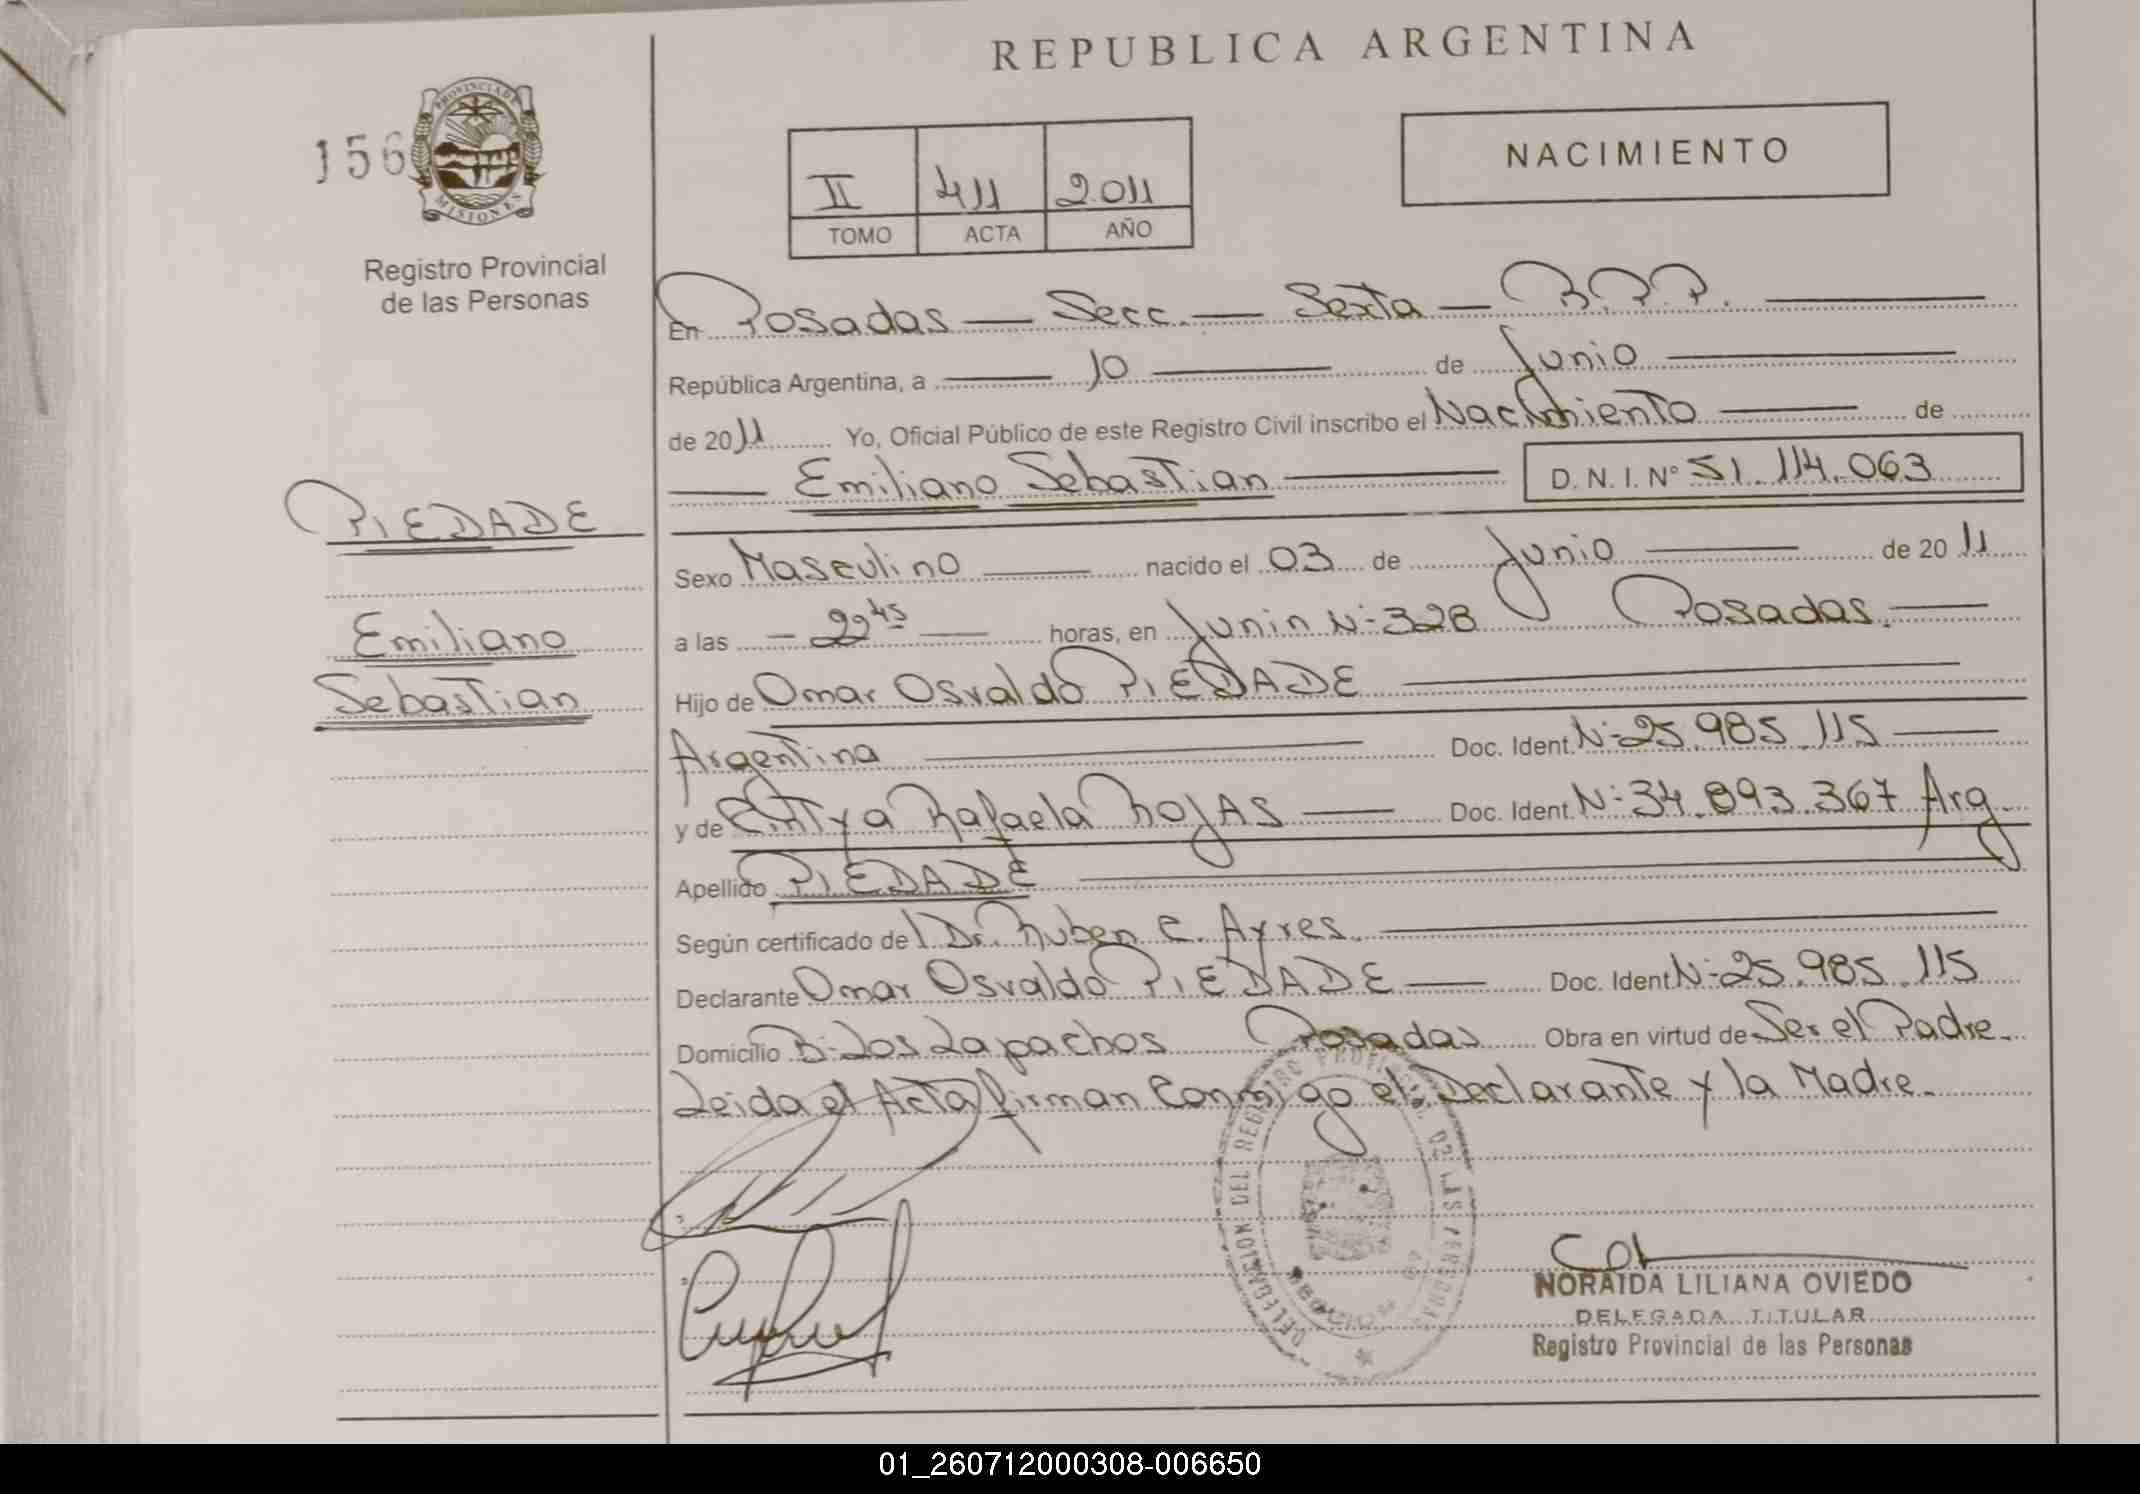 REPUBLICA ARGENTINA
156
PROVINCIA DE
MISIONES
Registro Provincial
de las Personas
II 411 2.011
TOMO ACTA AÑO
NACIMIENTO
En Posadas — Secc. — Sexta — R.P.P.
República Argentina, a 10 de Junio
de 2011 Yo, Oficial Público de este Registro Civil inscribo el Nacimiento de
Emiliano Sebastian D. N. I. Nº 51.114.063
PIEDADE
Emiliano
Sebastian
Sexo Masculino nacido el 03 de Junio de 2011
a las — 22 45 — horas, en Junin Nº 328 Posadas.
Hijo de Omar Osvaldo PIEDADE
Argentina Doc. Ident. Nº 25.985.115
y de Cintya Rafaela ROJAS Doc. Ident. Nº 34.893.367 Arg.
Apellido PIEDADE
Según certificado del Dr. Ruben C. Ayres.
Declarante Omar Osvaldo PIEDADE Doc. Ident. Nº 25.985.115
Domicilio Bº Los Lapachos Posadas Obra en virtud de Ser el Padre.
Leida el Acta firman Conmigo el Declarante y la Madre.
DELEGACION DEL REGISTRO PROVINCIAL DE LAS PERSONAS
NORAIDA LILIANA OVIEDO
DELEGADA TITULAR
Registro Provincial de las Personas
01_260712000308-006650